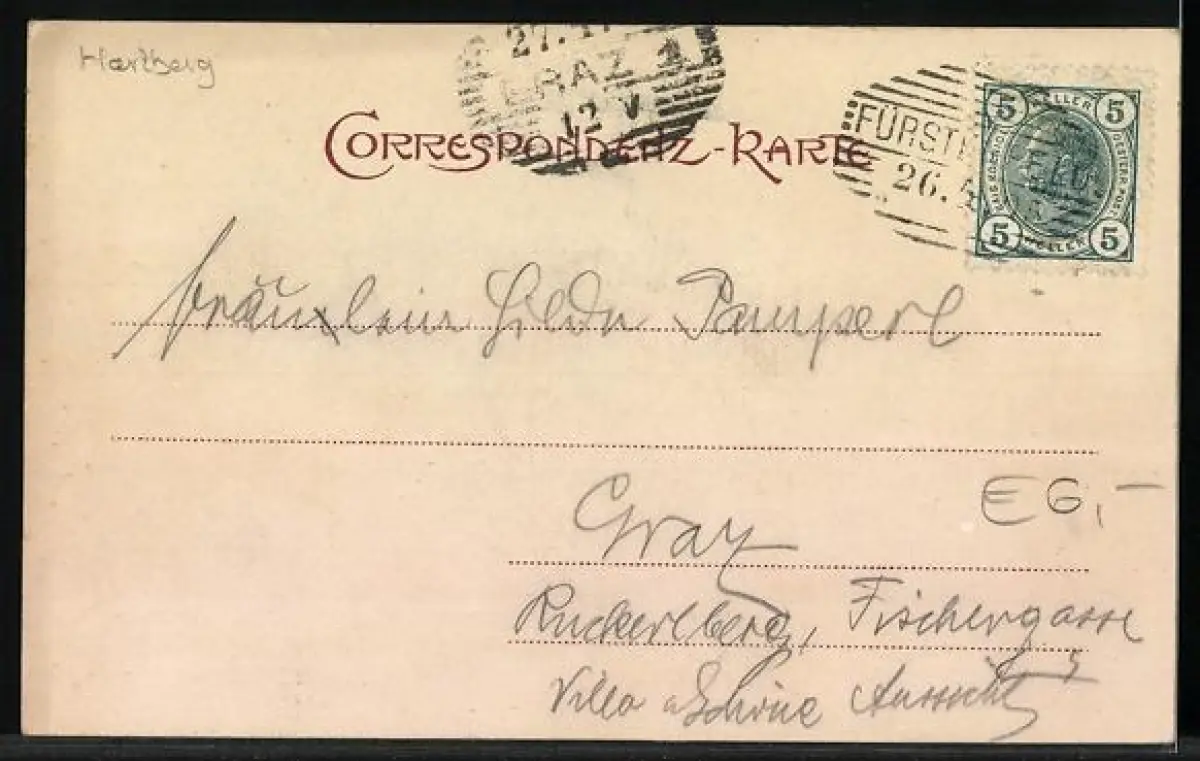 Hartberg
27.
GRAZ 1
12 V
CORRESPONDENZ-KARTE
FÜRSTENFELD
26. 4
5 HELLER 5
5 HELLER 5
Fräulein Hilda Pamperl
Graz
E6,-
Ruckerlberg, Fischergasse
5
Villa Schöne Aussicht